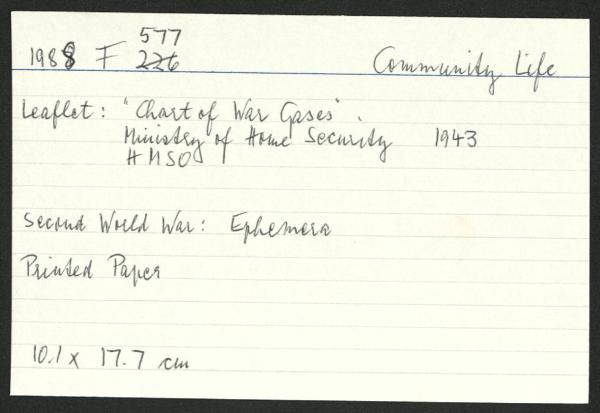 577
1988 F 226 Community Life
Leaflet: "Chart of War Gases".
Ministry of Home Security 1943
HMSO
Second World War: Ephemera
Printed Paper
10.1 x 17.7 cm